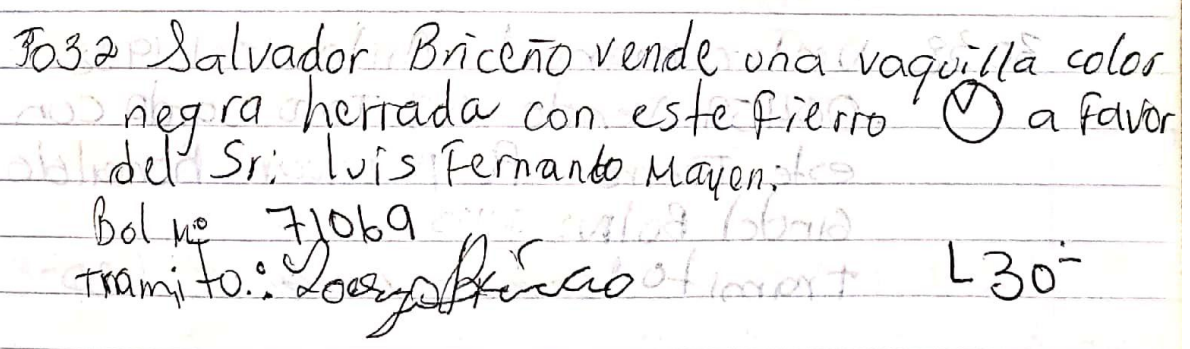 7032 Salvador Briceño vende una vaquilla color
negra herrada con este fierro a favor
del Sr: luis Fernando Mayen:
Bol Nº 71069
tramito:
L 30-